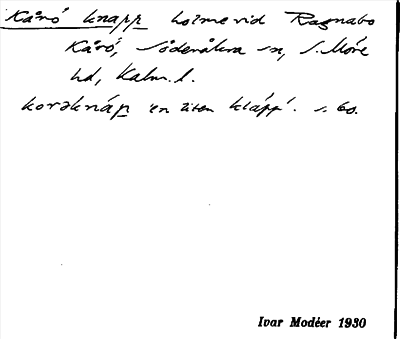 Kårö knapp holme vid Ragnabo
Kårö, Söderåkra sn, S. Möre
hd, Kalm. l.
korəknáp 'en liten kläpp'. s. 60.
Ivar Modéer 1930